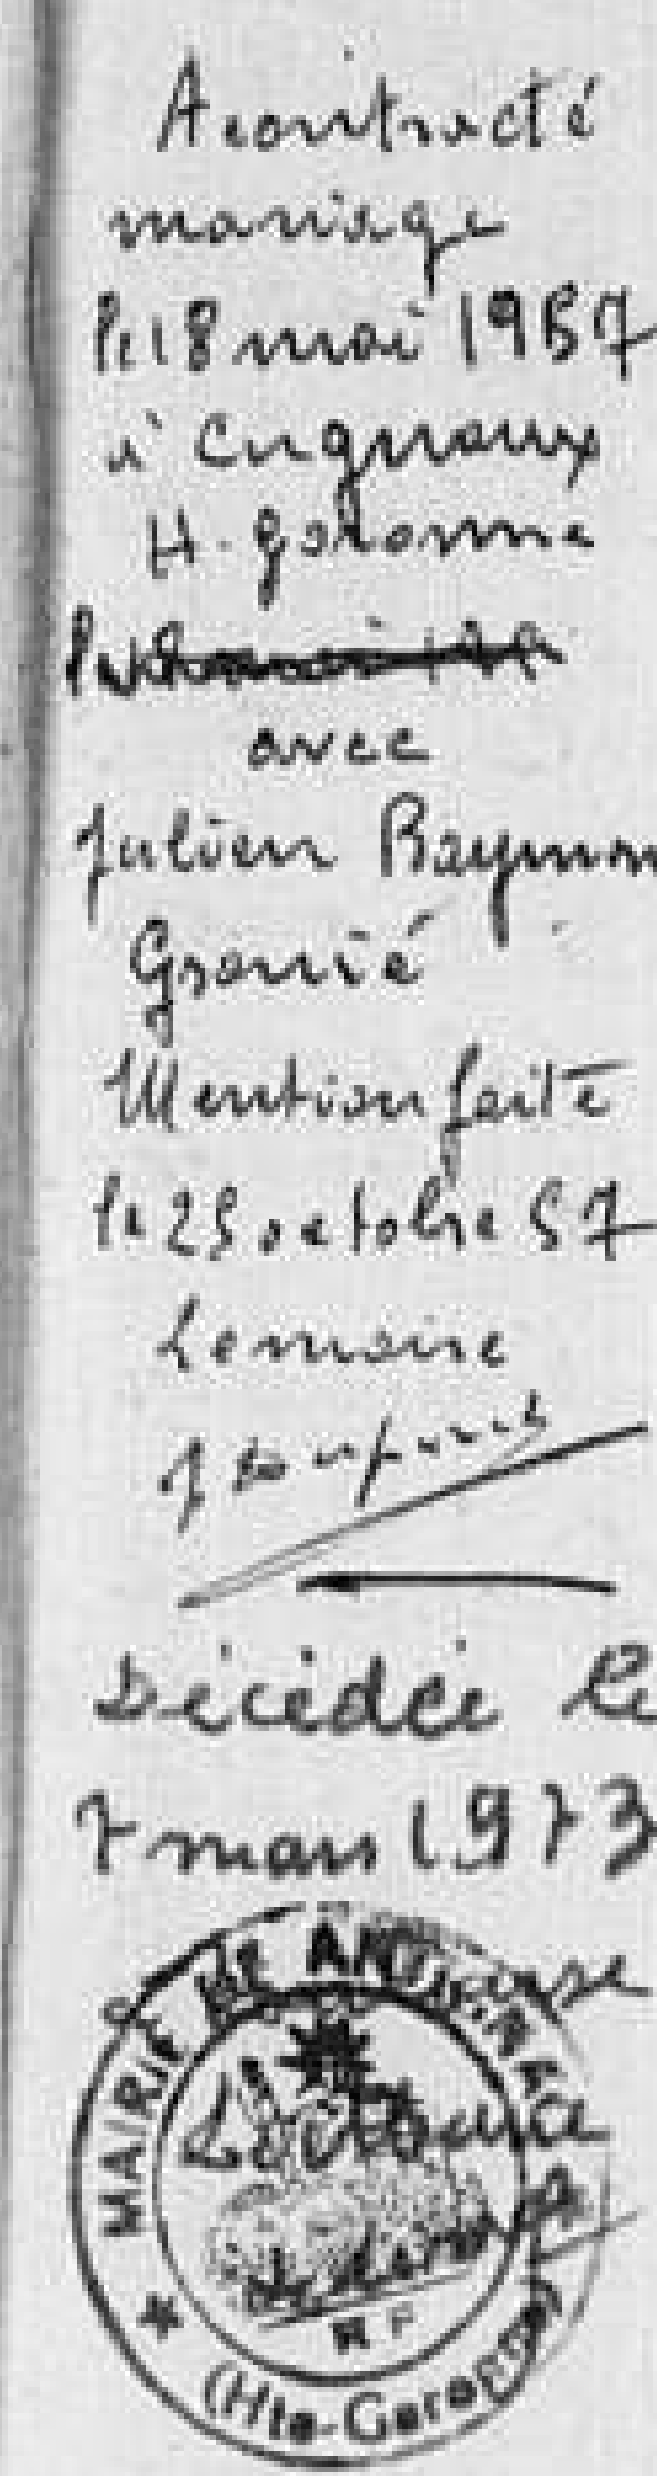 A contracté
mariage
le 18 mai 1957
à Cugnaux
H. Garonne
avec
Julien Raymon
Granié
Mention faite
le 25 octobre 57
Le maire
Décédée le
7 mars 1973
MAIRIE DE
R F
(Hte-Garonne)